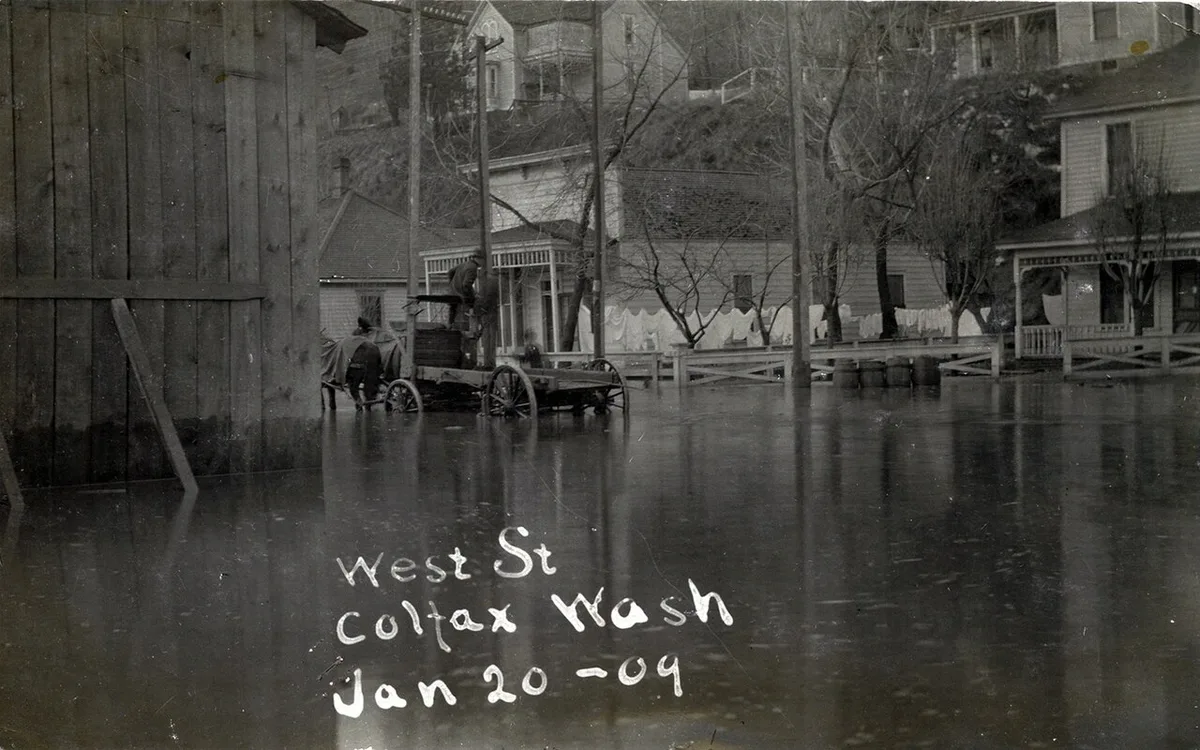 West St
Colfax Wash
Jan 20-09